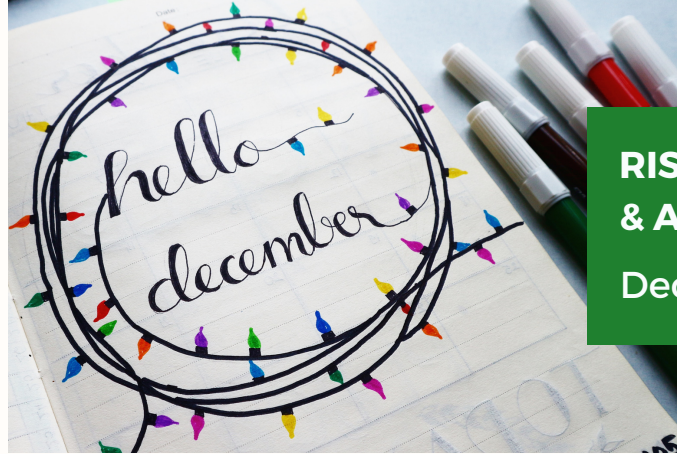 Date
hello
december
RIS
& A
Dec